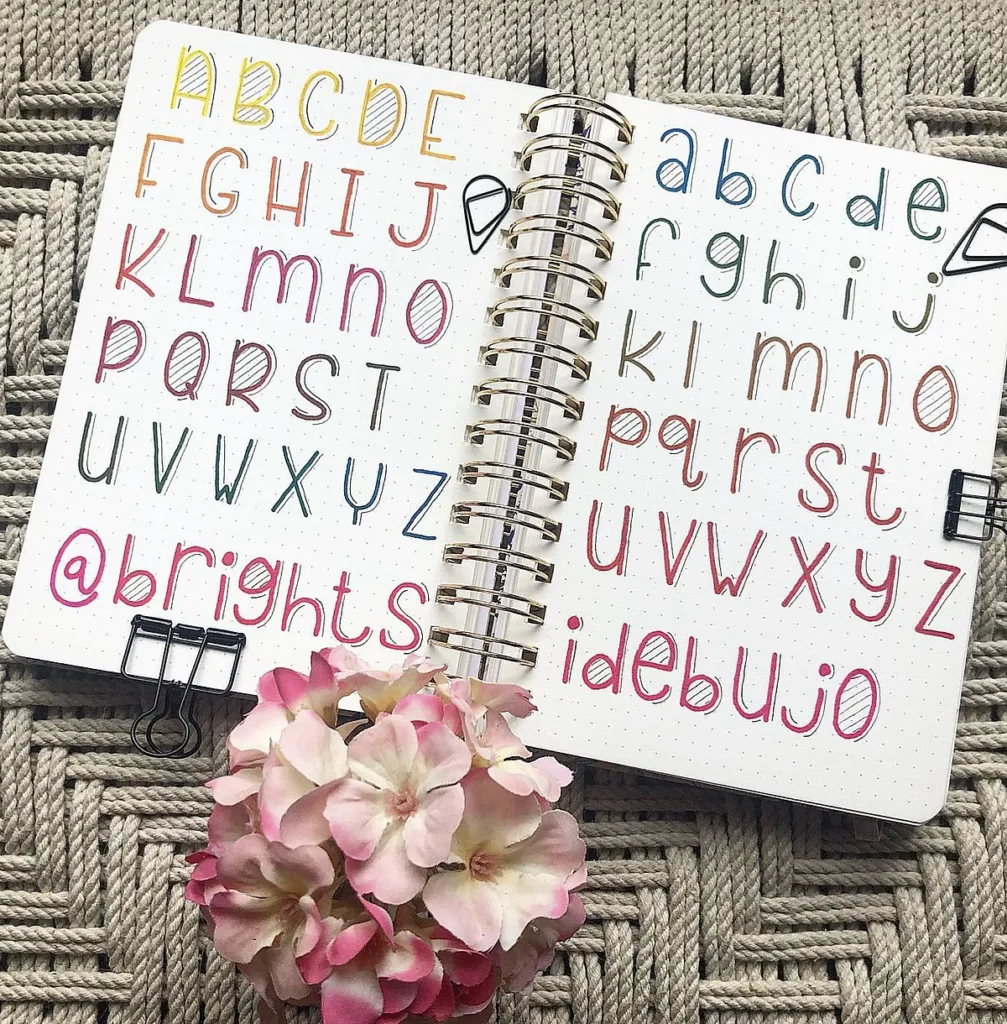 A B C D E
F G H I J
K L m n O
P Q R S T
U V W X Y Z
@brights
a b c d e
f g h i j
k l m n o
p q r s t
u v w x y z
idebujo